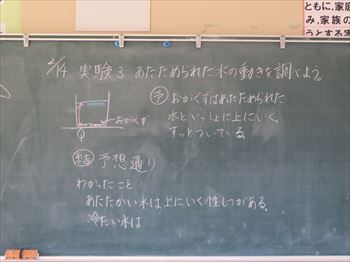 ともに、家庭
み、家族の
うとする実
2/14 実験3 あたためられた水の動きを調べよう。
予 おがくずはあたためられた
水といっしょに上にいく。
ずっとついている。
おがくず
結 予想通り
わかったこと
あたたかい水は上にいく性しつがある。
冷たい水は